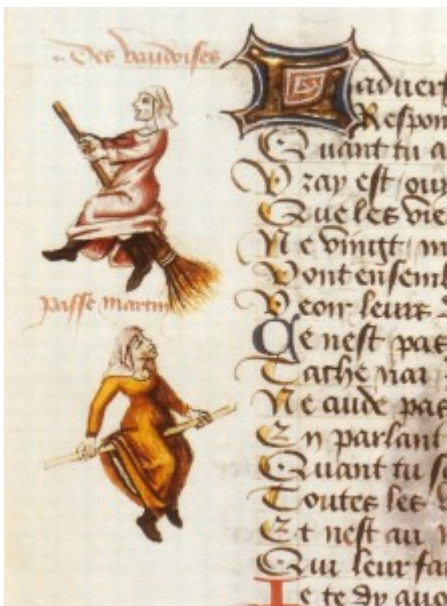 Des vaudoises
Laduers
Respon
Quant tu a
Vray est ouy
Que les vie
Ne vingt m
Vont ensembl
Veoir leurs
passe martin
Ce nest pas
Tache nai
Ne aude pas
En parlant
Quant tu s
Toutes les
Et nest au
Qui leur fa
Ie te dy quo